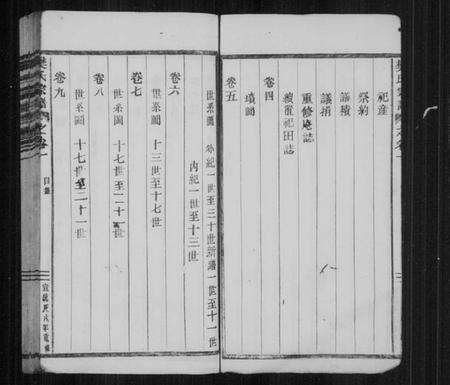 祀產
祭約
議積
議捐
重修庵誌
續置祀田誌
卷四
墳圖
卷五
世系圖 外紀一世至三十世新譜一世至十一世
內紀一世至十三世
卷六
世系圖 十三世至十七世
卷七
世系圖 十七世至二十世
卷八
世系圖 十七世至二十一世
卷九
目錄